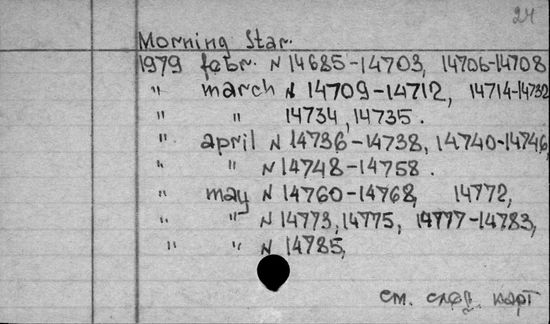 24
Morning Star.
1979 febr. N 14685-14703, 14706-14708
" march N 14709-14712, 14714-14732
" " 14734, 14735.
" april N 14736-14738, 14740-14746,
" " N 14748-14758.
" may N 14760-14768, 14772,
" " N 14773, 14775, 14777-14783,
" " N 14785,
см. след. карт